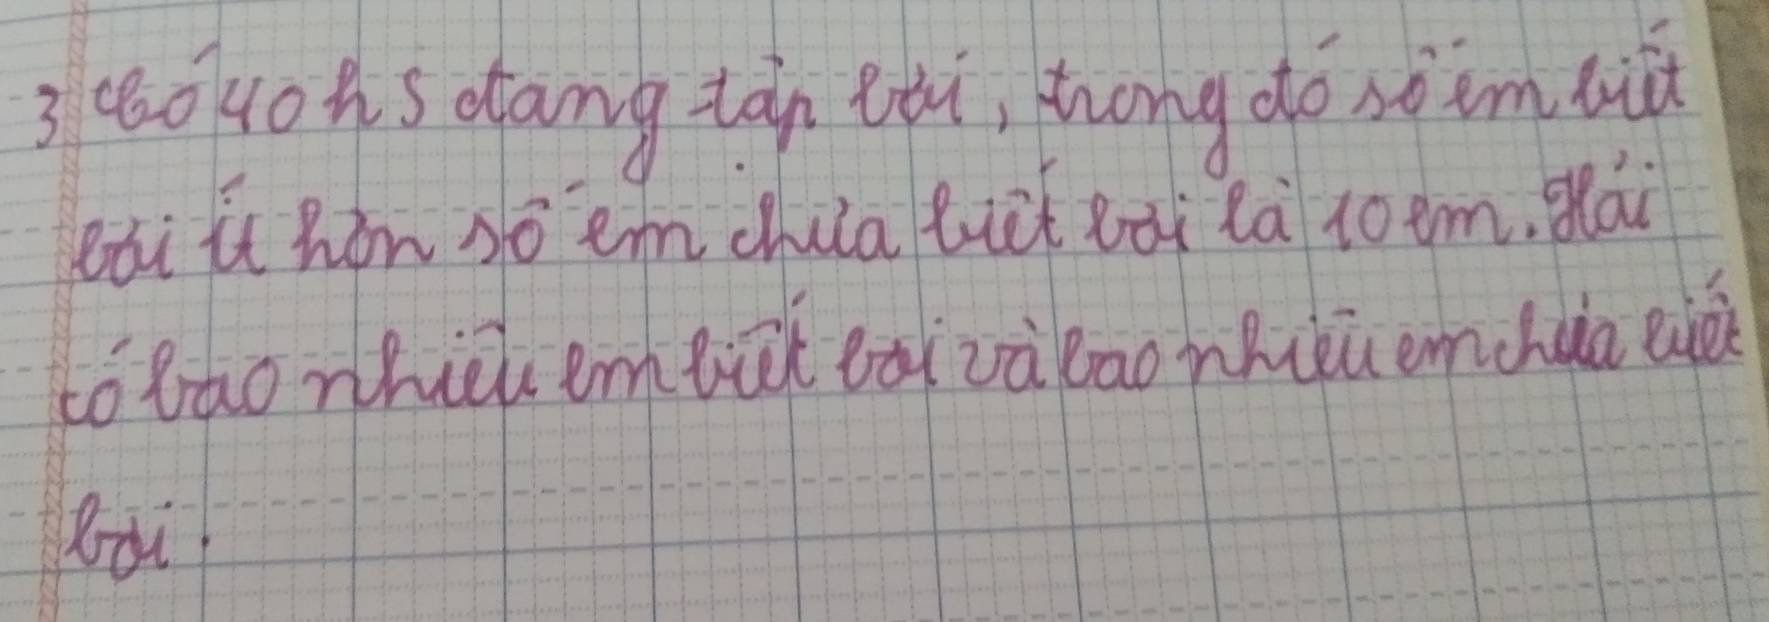 3 Có 40 hs đang tập bơi, trong đó số em biết
bơi ít hơn số em chưa biết bơi là 10 em. Hỏi
có bao nhiêu em biết bơi và bao nhiêu em chưa biết
bơi.